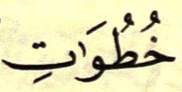 خُطُوَاتِ